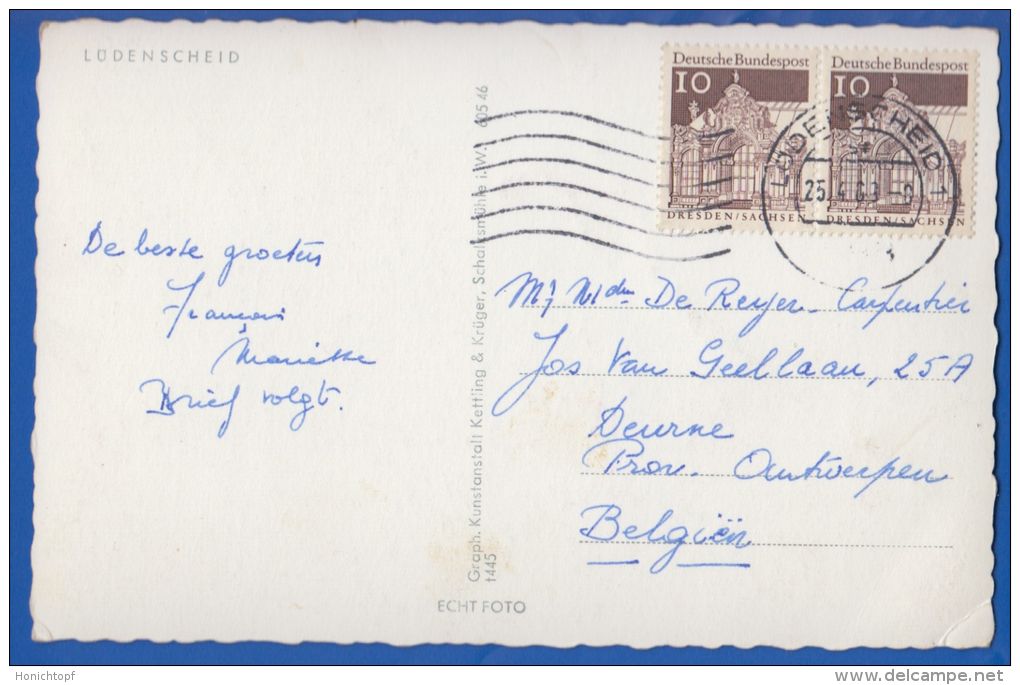 LÜDENSCHEID
Deutsche Bundespost
10
DRESDEN/SACHSEN
Deutsche Bundespost
10
DRESDEN/SACHSEN
LÜDENSCHEID 1
25.4.69-
De beste groeten
François
Mariette
Brief volgt.
Graph. Kunstanstalt Kettling & Krüger, Schalksmühle i.W. 605 46
t445
ECHT FOTO
De Reyer-Carpentier
Jos Van Geellaan, 25A
Deurne
Prov. Antwerpen
Belgiën
Honichtopf
www.delcampe.net